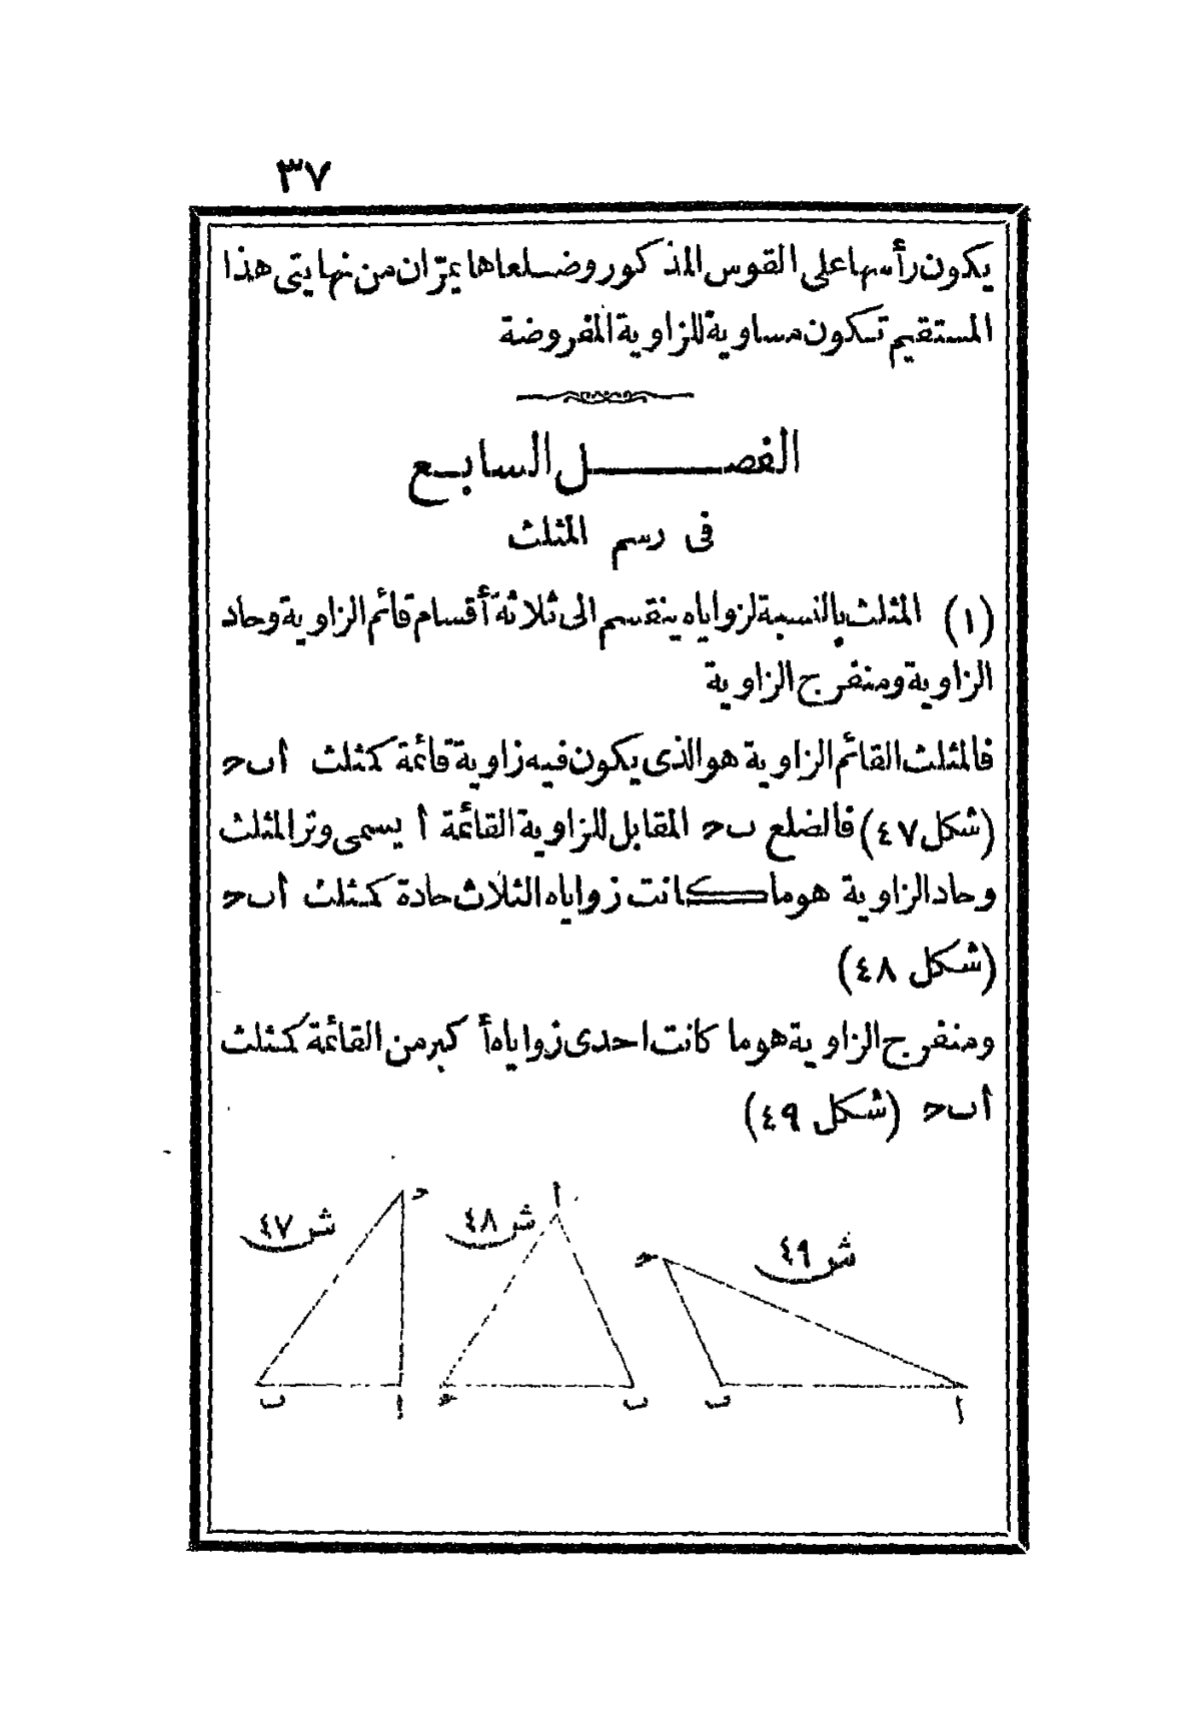 ٣٧
يكون رأسها على القوس المذكور وضلعاها يمرّان من نهايتى هذا
المستقيم تكون مساوية للزاوية المفروضة
الفصل السابع
فى رسم المثلث
(١) المثلث بالنسبة لزواياه ينقسم الى ثلاثة أقسام قائم الزاوية وحاد
الزاوية ومنفرج الزاوية
فالمثلث القائم الزاوية هو الذى يكون فيه زاوية قائمة كمثلث أ ب ح
(شكل ٤٧) فالضلع ب ح المقابل للزاوية القائمة أ يسمى وتر المثلث
وحاد الزاوية هو ما كانت زواياه الثلاث حادة كمثلث أ ب ح
(شكل ٤٨)
ومنفرج الزاوية هو ما كانت احدى زواياه أكبر من القائمة كمثلث
أ ب ح (شكل ٤٩)
ش ٤٩
ح
ب
أ
ش ٤٨
أ
ب
ح
ش ٤٧
ح
أ
ب